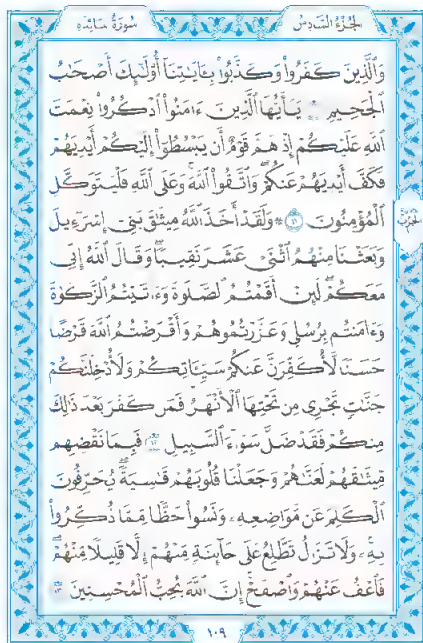 سُورَةُ المَائدة
الجُزءُ السَّادِسُ
وَٱلَّذِينَ كَفَرُوا۟ وَكَذَّبُوا۟ بِـَٔايَـٰتِنَآ أُو۟لَـٰٓئِكَ أَصْحَـٰبُ
ٱلْجَحِيمِ ۝١٠ يَـٰٓأَيُّهَا ٱلَّذِينَ ءَامَنُوا۟ ٱذْكُرُوا۟ نِعْمَتَ
ٱللَّهِ عَلَيْكُمْ إِذْ هَمَّ قَوْمٌ أَن يَبْسُطُوٓا۟ إِلَيْكُمْ أَيْدِيَهُمْ
فَكَفَّ أَيْدِيَهُمْ عَنكُمْ ۖ وَٱتَّقُوا۟ ٱللَّهَ ۚ وَعَلَى ٱللَّهِ فَلْيَتَوَكَّلِ
ٱلْمُؤْمِنُونَ ۝١١ ۞ وَلَقَدْ أَخَذَ ٱللَّهُ مِيثَـٰقَ بَنِىٓ إِسْرَٰٓءِيلَ
وَبَعَثْنَا مِنْهُمُ ٱثْنَىْ عَشَرَ نَقِيبًا ۖ وَقَالَ ٱللَّهُ إِنِّى
مَعَكُمْ ۖ لَئِنْ أَقَمْتُمُ ٱلصَّلَوٰةَ وَءَاتَيْتُمُ ٱلزَّكَوٰةَ
وَءَامَنتُم بِرُسُلِى وَعَزَّرْتُمُوهُمْ وَأَقْرَضْتُمُ ٱللَّهَ قَرْضًا
حَسَنًا لَّأُكَفِّرَنَّ عَنكُمْ سَيِّـَٔاتِكُمْ وَلَأُدْخِلَنَّكُمْ
جَنَّـٰتٍ تَجْرِى مِن تَحْتِهَا ٱلْأَنْهَـٰرُ ۚ فَمَن كَفَرَ بَعْدَ ذَٰلِكَ
مِنكُمْ فَقَدْ ضَلَّ سَوَآءَ ٱلسَّبِيلِ ۝١٢ فَبِمَا نَقْضِهِم
مِّيثَـٰقَهُمْ لَعَنَّـٰهُمْ وَجَعَلْنَا قُلُوبَهُمْ قَـٰسِيَةً ۖ يُحَرِّفُونَ
ٱلْكَلِمَ عَن مَّوَاضِعِهِۦ ۙ وَنَسُوا۟ حَظًّا مِّمَّا ذُكِّرُوا۟
بِهِۦ ۚ وَلَا تَزَالُ تَطَّلِعُ عَلَىٰ خَآئِنَةٍ مِّنْهُمْ إِلَّا قَلِيلًا مِّنْهُمْ ۖ
فَٱعْفُ عَنْهُمْ وَٱصْفَحْ ۚ إِنَّ ٱللَّهَ يُحِبُّ ٱلْمُحْسِنِينَ ۝١٣
١٠٩